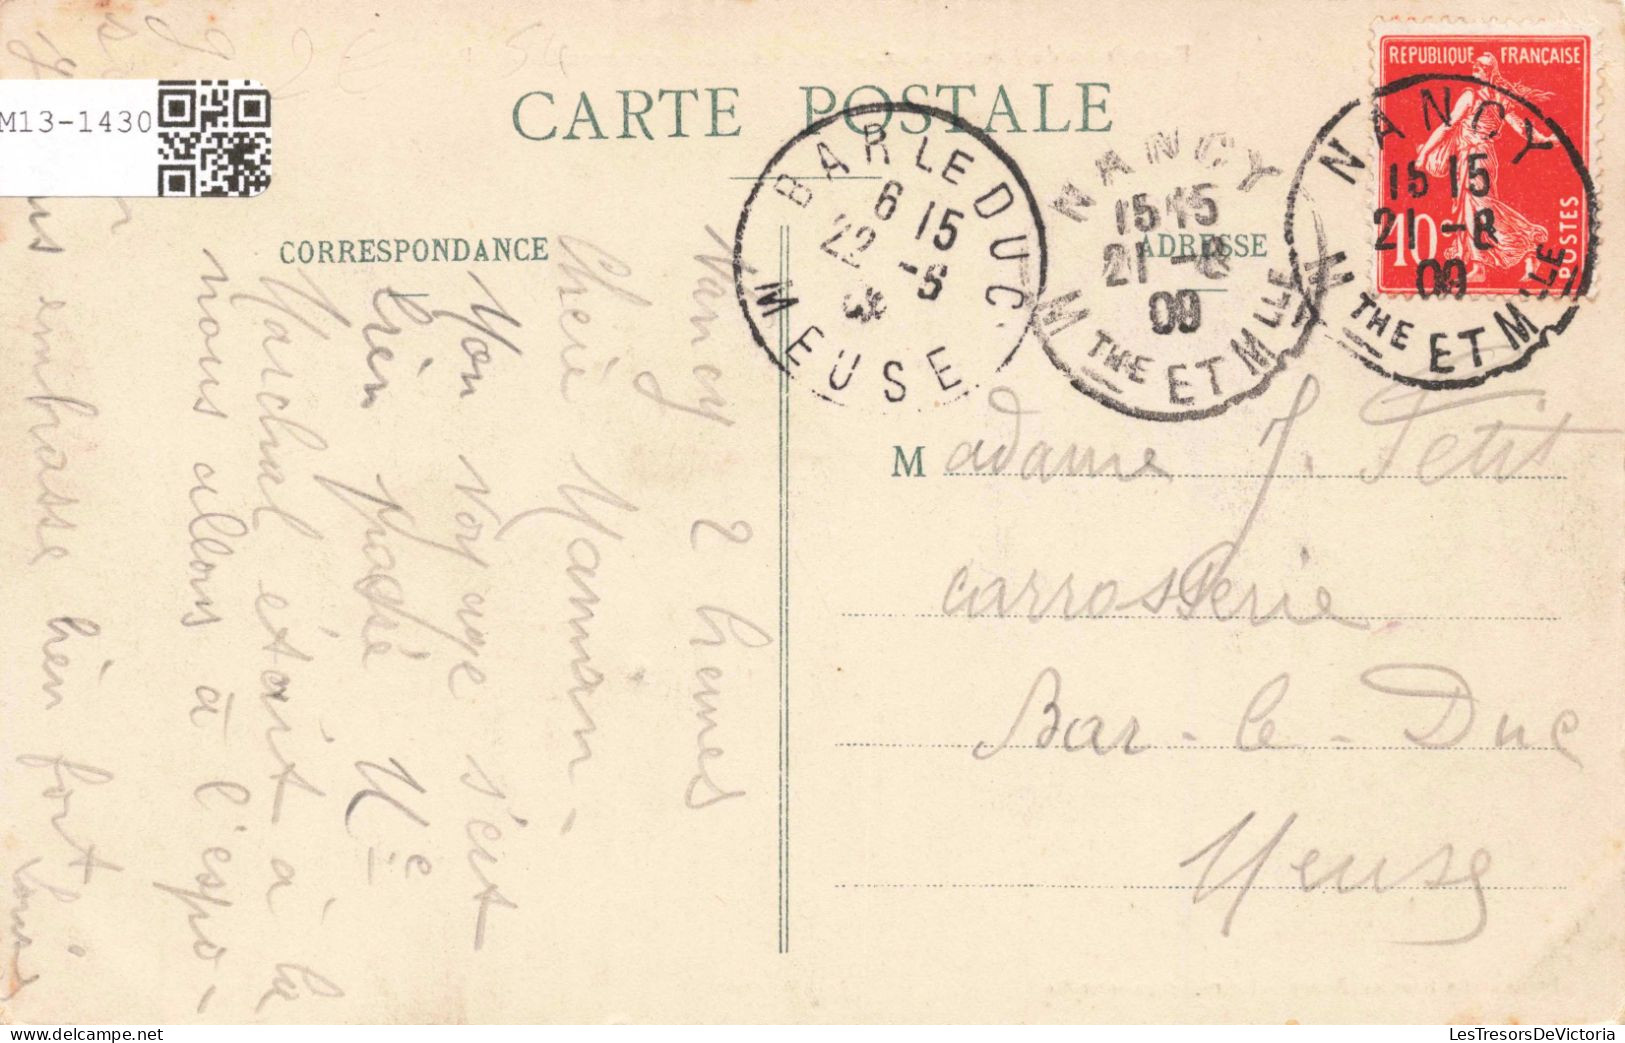 CARTE POSTALE
CORRESPONDANCE
ADRESSE
M13-1430
REPUBLIQUE FRANÇAISE
10 c
POSTES
BAR LE DUC
6 15
22 -8
MEUSE
NANCY
15 15
21 -8
09
M THE ET M LLE
NANCY
15 15
21 -8
09
M THE ET M LLE
Nancy 2 heures
Chérie Maman -
Mon voyage s'est
bien passé Me
Marchal était à la
nous allons à l'expo-
embrasse bien fort
Madame J. Petit
carrosserie
Bar-le-Duc
Meuse
LesTresorsDeVictoria.com